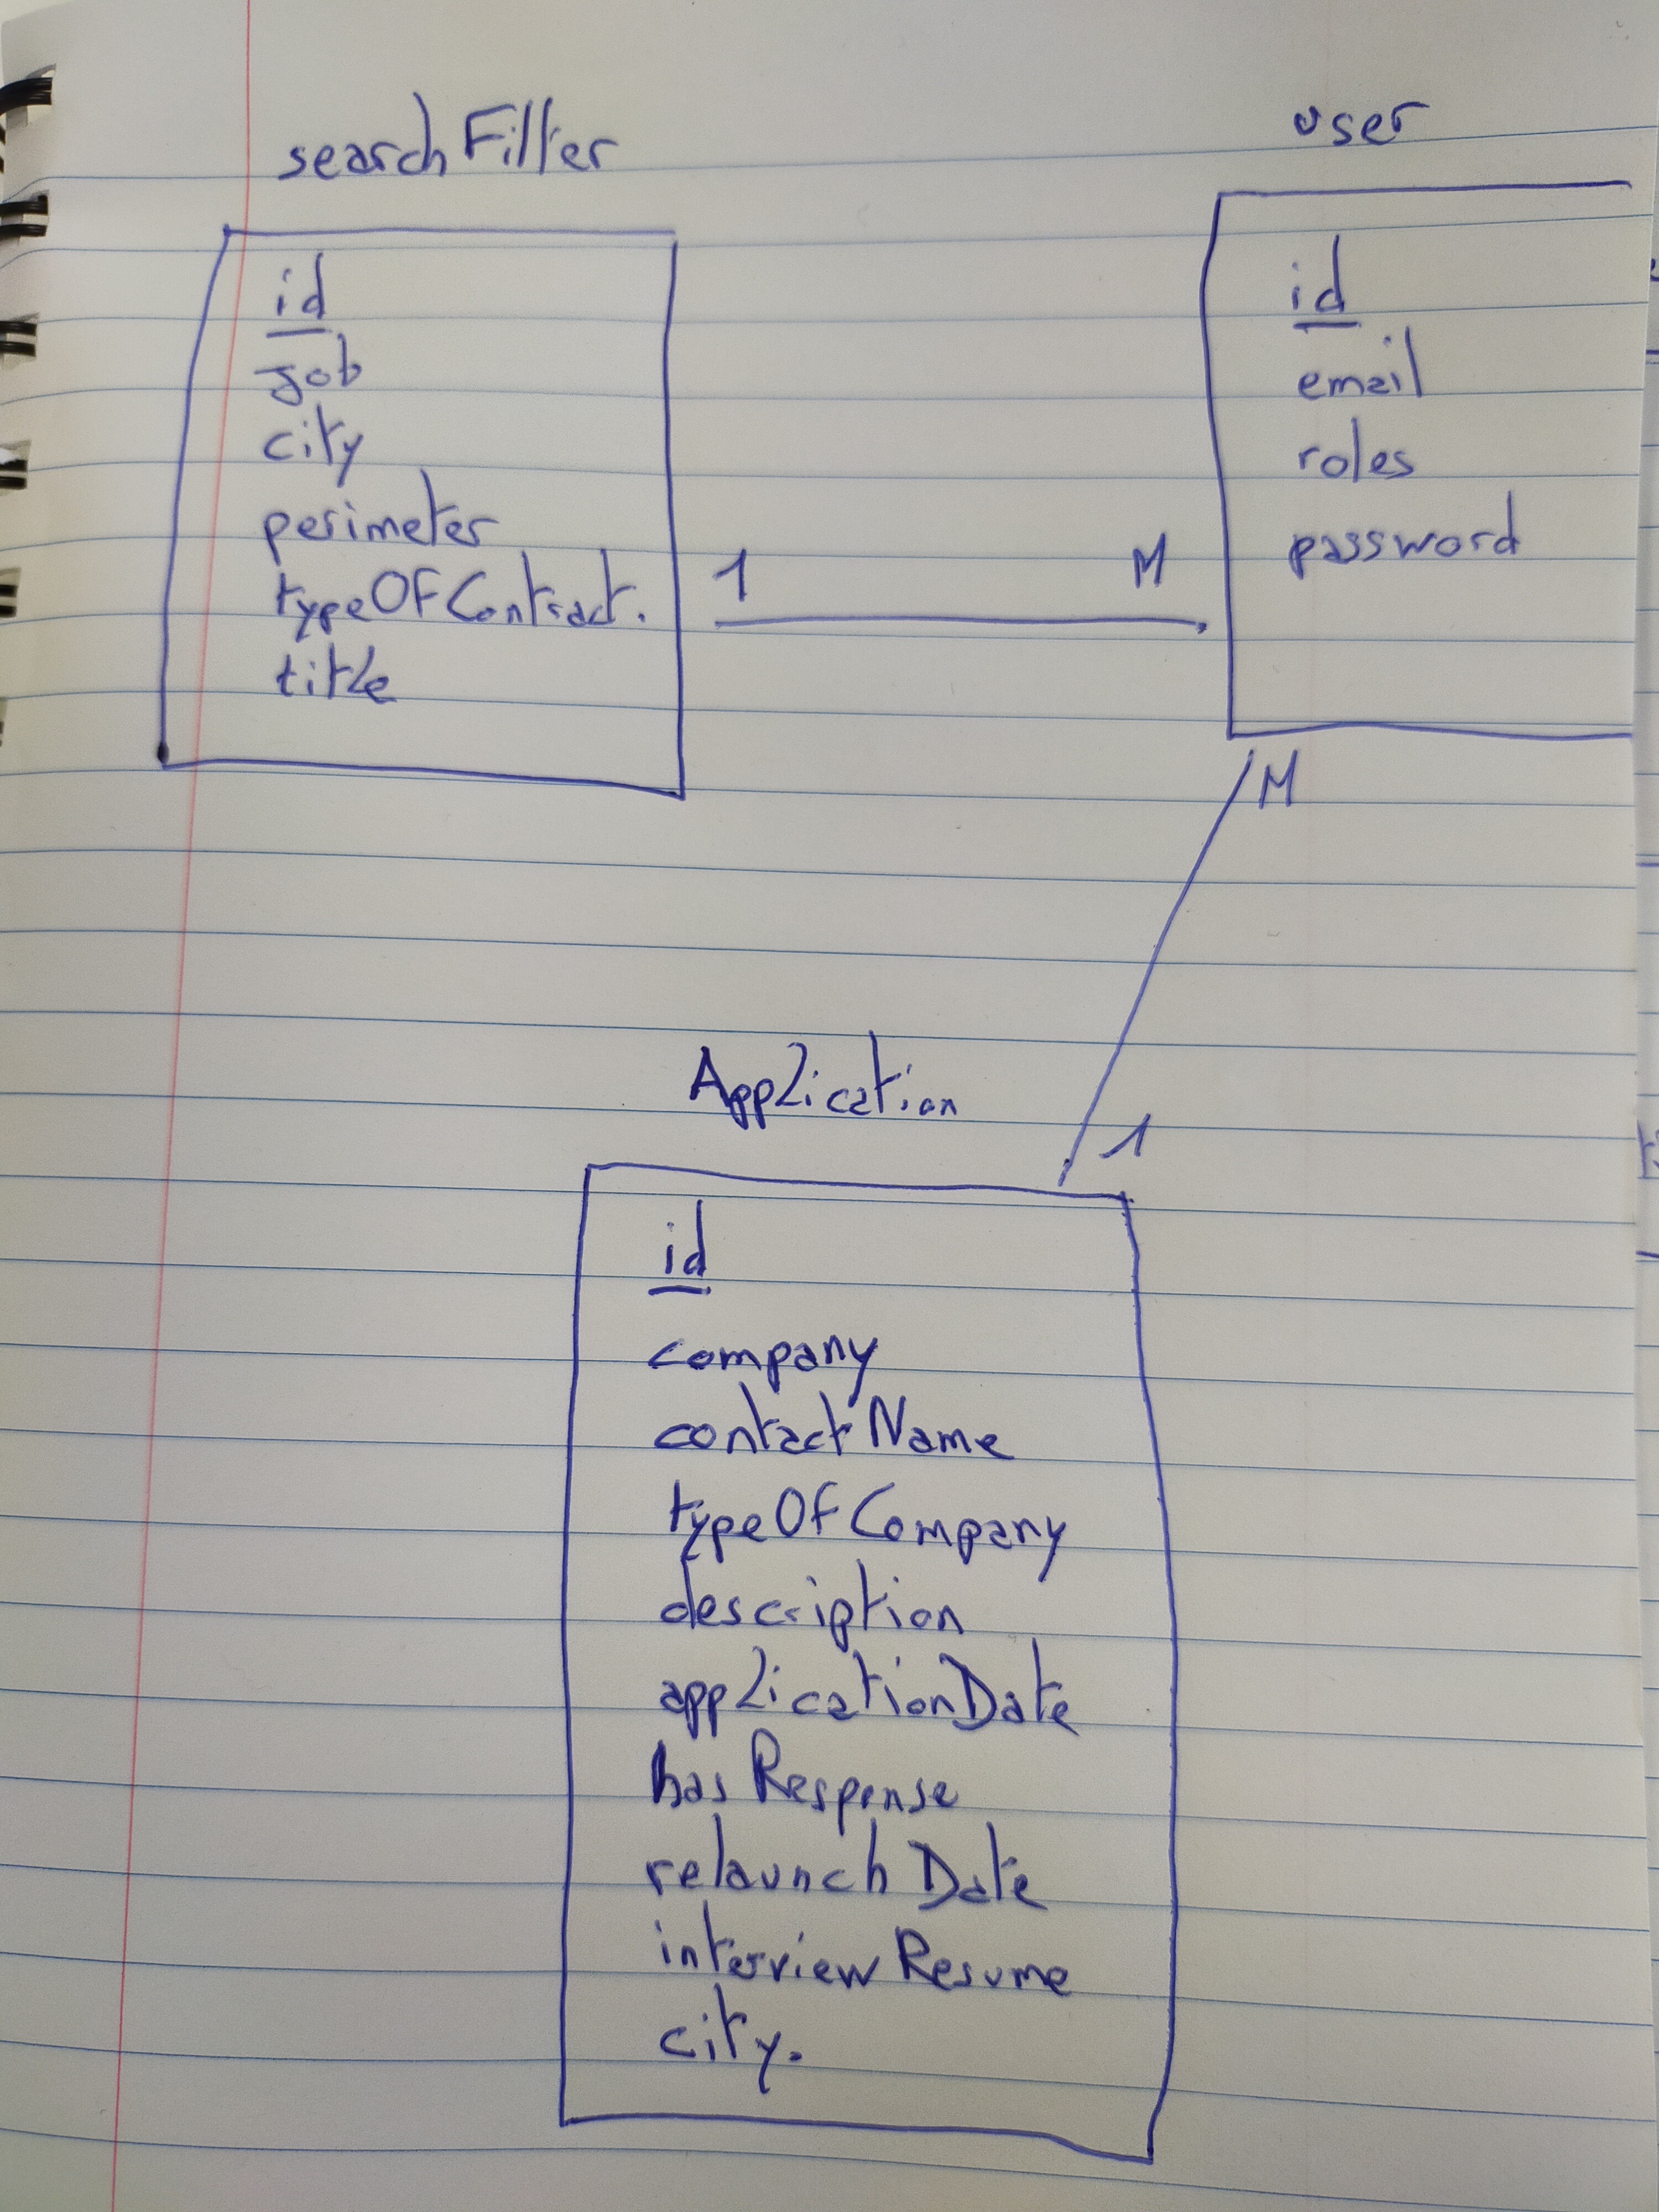 searchFilter
id
job
city
perimeter
typeOfContract.
title
1 M
user
id
email
roles
password
M
1
Application
id
company
contactName
typeOfCompany
description
applicationDate
hasResponse
relaunchDate
interviewResume
city.